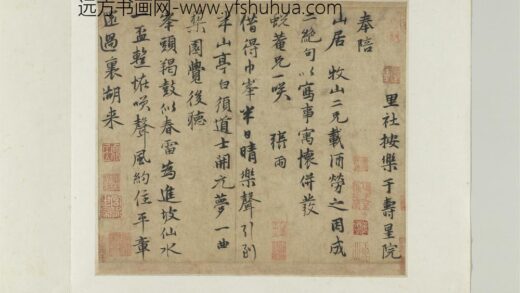 远方书画网-www.yfshuhua.com
奉陪
里社按樂于壽星院
山居 牧山二兄載酒勞之因成
二絕句以寫事寓懷併發
蛻菴兄一咲 張雨
借得巾峯半日晴樂聲引到
半山亭白須道士開元夢一曲
梨園覺後聽
峯頭羯鼓似春雷為進坡仙水
一盃 咲聲風約住平章
過裏湖来